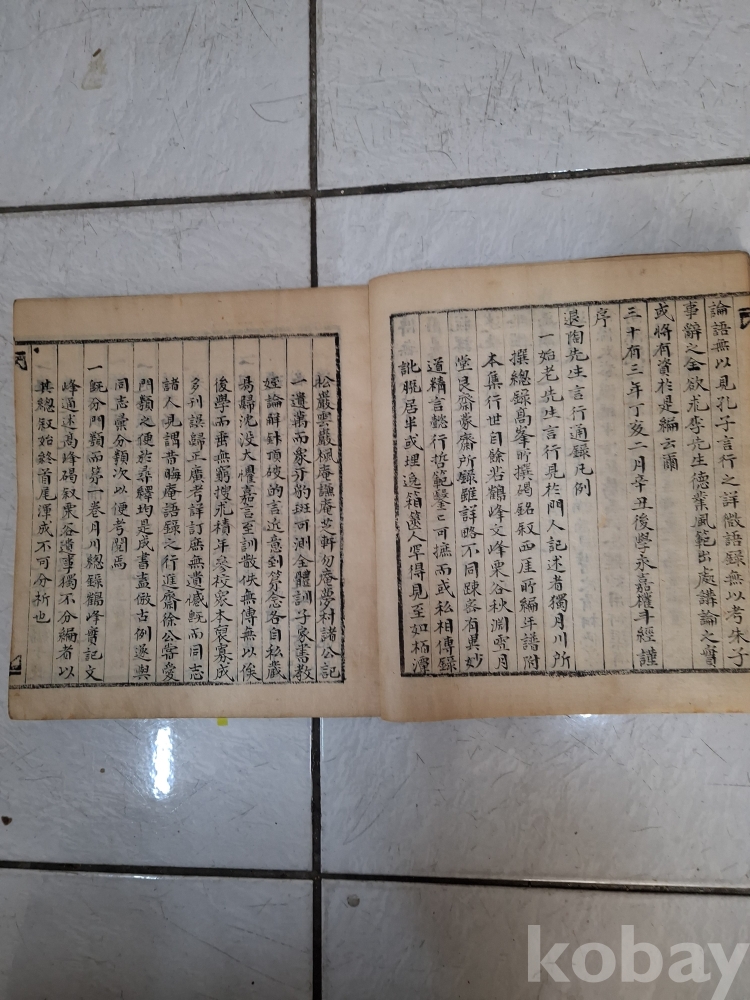 論語無以見孔子言行之詳微語錄無以考朱子
事辭之全欲求李先生德業風範出處講論之實
或將有資於是編云爾
三十有三年丁亥二月辛丑後學永嘉權斗經謹
序
退陶先生言行通錄凡例
一始老先生言行見於門人記述者獨月川所
撰總錄高峯所撰碣銘叙西厓所編年譜附
本集行世自餘若鶴峰文峰栗谷秋淵雪月
堂艮齋蒙齋所錄雖詳略不同踈密有異妙
道精言懿行哲範鑿鑿可據而或私相傳錄
訛脫居半或埋逸箱篋人罕得見至如栢潭
松巖雲巖楓庵謙庵芝軒勿庵夢村諸公記
一遺萬而衆分豹斑可測全體訓子家書教
姪論解針頂砭的言近意到第念各自私藏
馬歸沈沒大懼嘉言至訓散佚無傳無以俟
後學而垂無窮搜求積年參校衆本裒寡成
多刊誤歸正廣考詳訂庶無遺憾旣而同志
諸人見謂昔晦庵語錄之行涯齋徐公嘗愛
門類之便於尋繹均是成書盍倣古例遂與
同志彙分類次以便考閱焉
一旣分門類而第一卷月川總錄鶴峰實記文
峰通述高峰碣叙栗谷遺事獨不分編者以
其總叙始終首尾渾成不可分析也
kobay